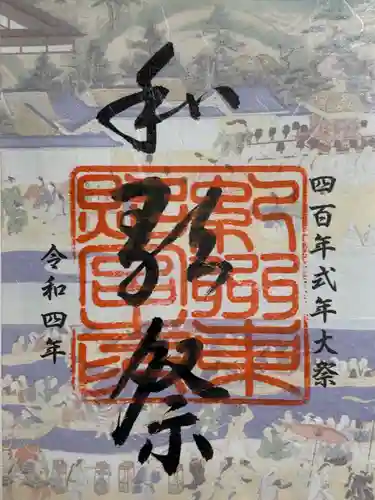 四百年式年大祭
和歌祭
令和四年
紀州東
照宮印